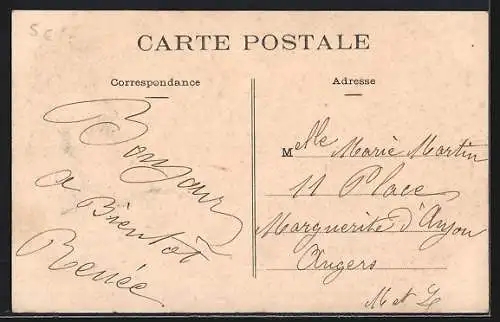 CARTE POSTALE
Correspondance
Bonjour
a Bientôt
Renée
Adresse
Melle Marie Martin
11 Place
Marguerite d'Anjou
Angers
M et L